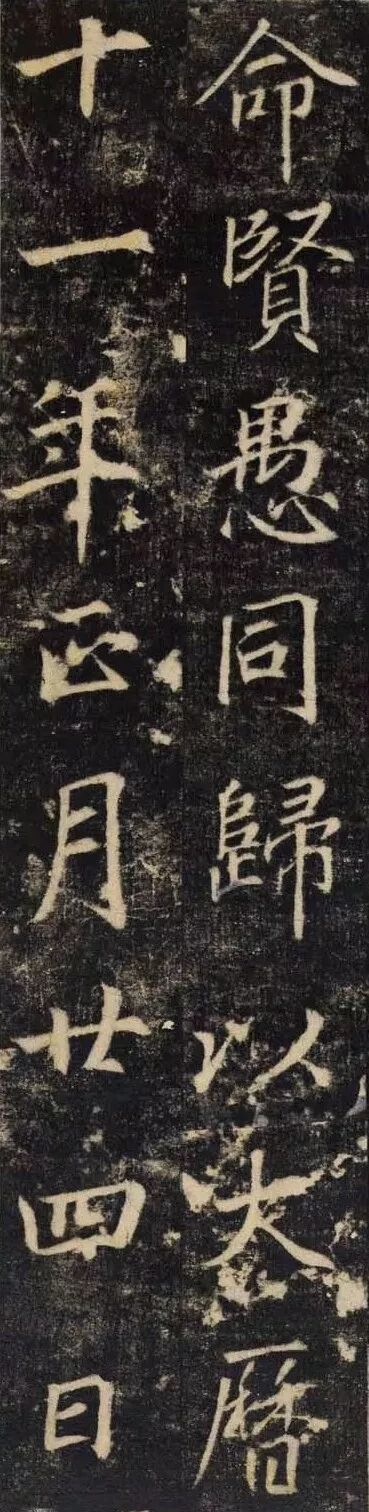 命賢愚同歸以大曆
十一年正月廿四日